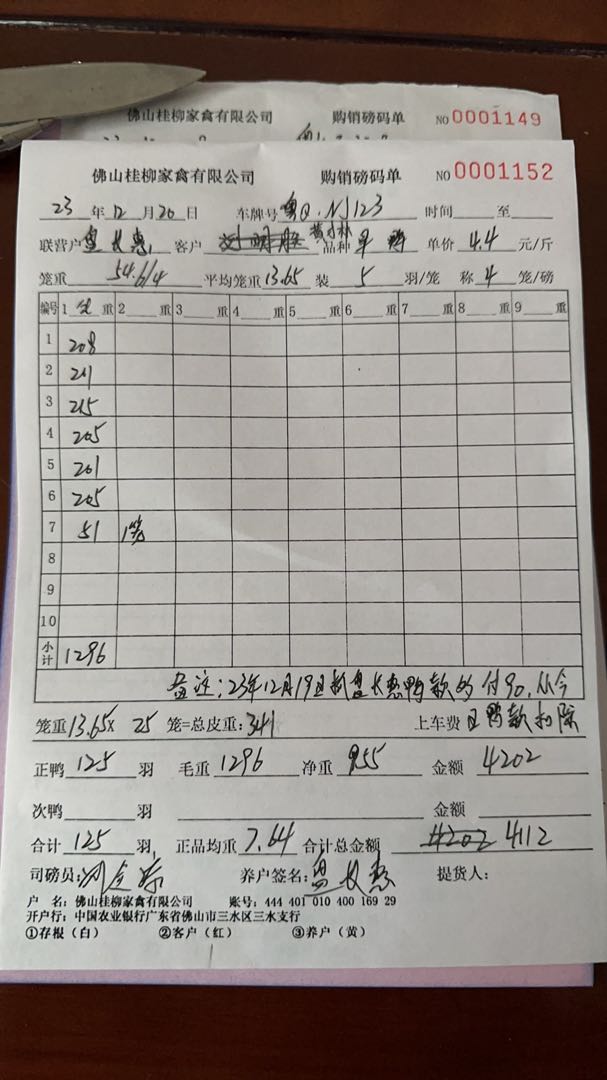 佛山桂柳家禽有限公司 购销磅码单 NO 0001149
佛山桂柳家禽有限公司 购销磅码单 NO 0001152
23 年 12 月 20 日 车牌号 粤Q·NJ123 时间 至
联营户 盘长惠 客户 品种 单价 4.4 元/斤
笼重 54.6/4 平均笼重 13.65 装 5 羽/笼 称 4 笼/磅
编号 1 重 2 重 3 重 4 重 5 重 6 重 7 重 8 重 9 重
1 208
2 211
3 215
4 205
5 201
6 205
7 51 1笼
8
9
10
小计 1296
备注:23年12月19日 盘长惠鸭款 付90,从今
笼重 13.65 x 25 笼=总皮重: 341 上车费 日鸭款扣除
正鸭 125 羽 毛重 1296 净重 955 金额 4202
次鸭 羽 金额
合计 125 羽, 正品均重 7.64 合计总金额 4202 4112
司磅员: 养户签名: 盘长惠 提货人:
户 名: 佛山桂柳家禽有限公司 账号: 444 401 010 400 169 29
开户行: 中国农业银行广东省佛山市三水区三水支行
①存根(白) ②客户(红) ③养户(黄)